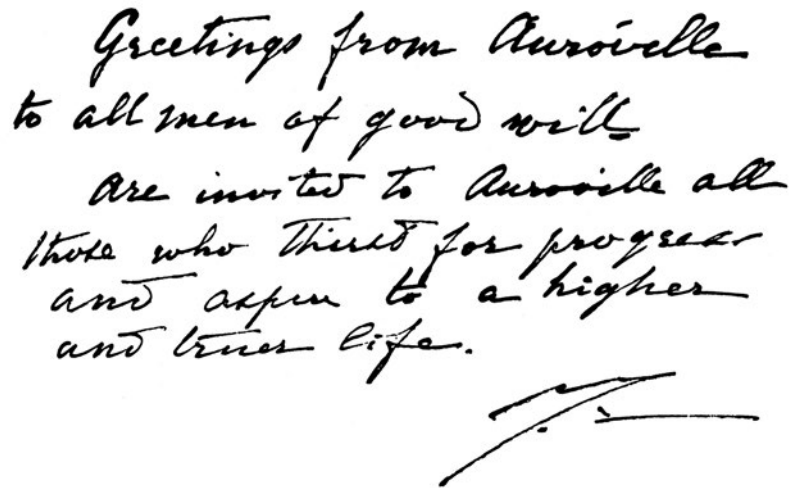 Greetings from Auroville
to all men of good will
are invited to Auroville all
those who thirst for progress
and aspire to a higher
and truer life.